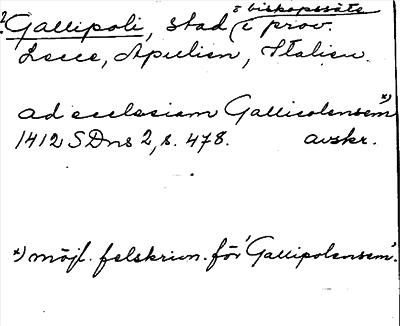 ? Gallipoli, stad o biskopssäte i prov.
Lecce, Apulien, Italien.
ad ecclesiam Gallicolensem x)
1412 SDns 2, s. 478. avskr.
x) möjl. felskrivn. för 'Gallipolensem'.